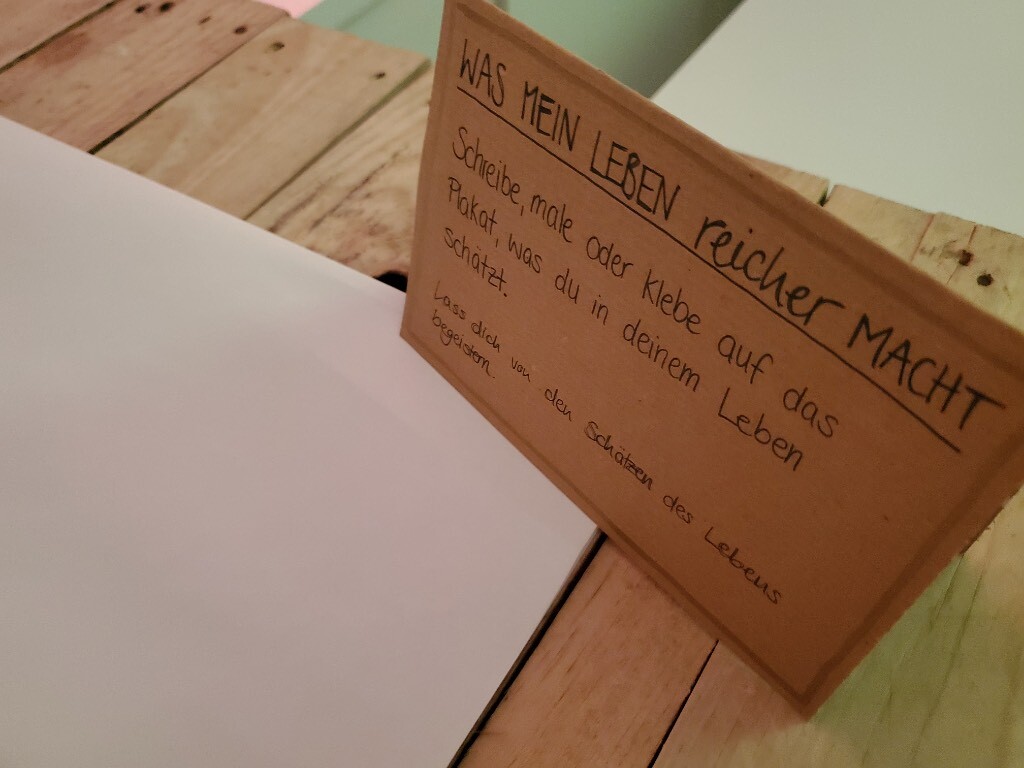 WAS MEIN LEBEN reicher MACHT
Schreibe, male oder klebe auf das
Plakat, was du in deinem Leben
schätzt.
Lass dich von den Schätzen des Lebens
begeistern.